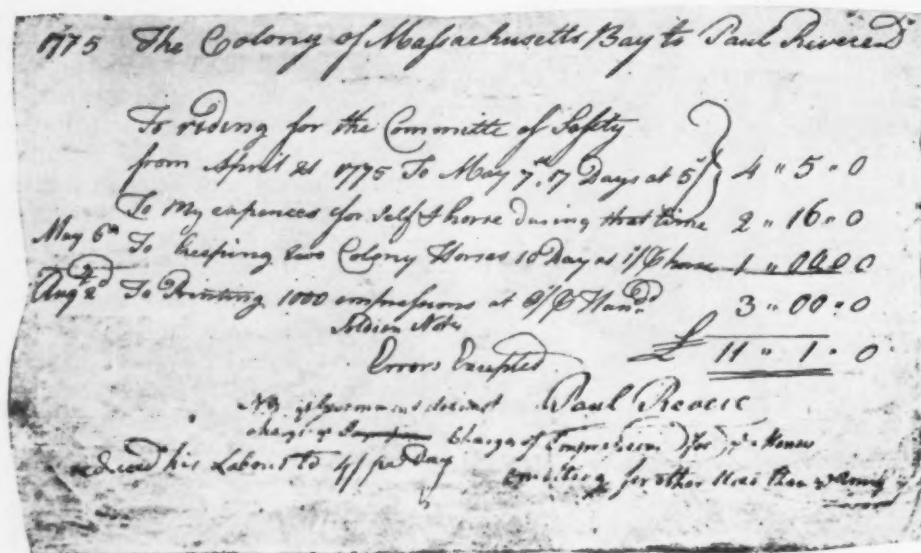 1775 The Colony of Massachusetts Bay to Paul Revere Dr
To riding for the Committe of Safety
from April 21 1775 To May 7th, 17 Days at 5/ 4 " 5 " 0
To My expences for self & horse during that time 2 " 16 " 0
May 6th To keeping two Colony Horses 10 Day at 1/ horse 1 " 00 0
Augt 2d To Printing 1000 impressions at 6/ Hund. 3 " 00 " 0
Soldiers Notes
£ 11 " 1 " 0
Errors Excepted
Paul Revere
NB
charge charge of Impressions for ye
reduced his Labour to 4/ per Day for other Uses than ye Army